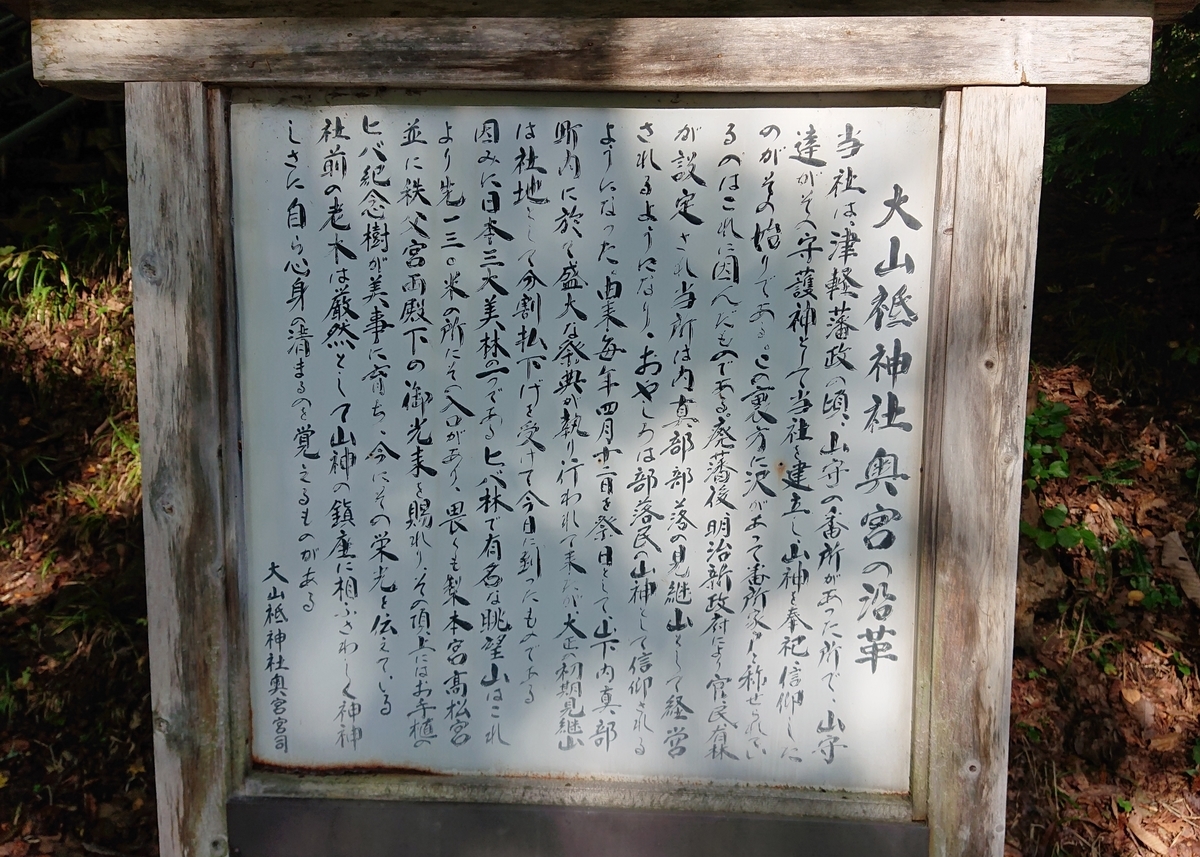 大山祇神社奥宮の沿革
当社は、津軽藩政の頃、山守の番所があった所で、山守
達がそヘ守護神として当社を建立し山神を奉祀信仰した
のがその始りである。この裏方に沢があって番所沢と称せられてい
るのはこれに因んだものである。廃藩後、明治新政府により官民有林
が設定され当所は内真部部落の見継山として経営
されるようになり、おやしろは部落民の山神として信仰される
ようになった。由来毎年四月十二日を祭日として山下内真部
町内に於て盛大な祭典が執り行われて来たが大正の初期見継山
は社地として分割払下げを受けて今日に到ったものである
因みに日本三大美林の一つであるヒバ林で有名な眺望山はこれ
より先一三〇米の所にその入口があり、畏くも梨本宮高松宮
並に秩父宮両殿下の御光来を賜れり、その頂上にはお手植の
ヒバ紀念樹が美事に育ち、今にその栄光を伝えている
社前の老木は厳然として山神の鎮座に相ふさわしく神神
しさに自ら心身の清まるのを覚えるものがある
大山祇神社奥宮宮司